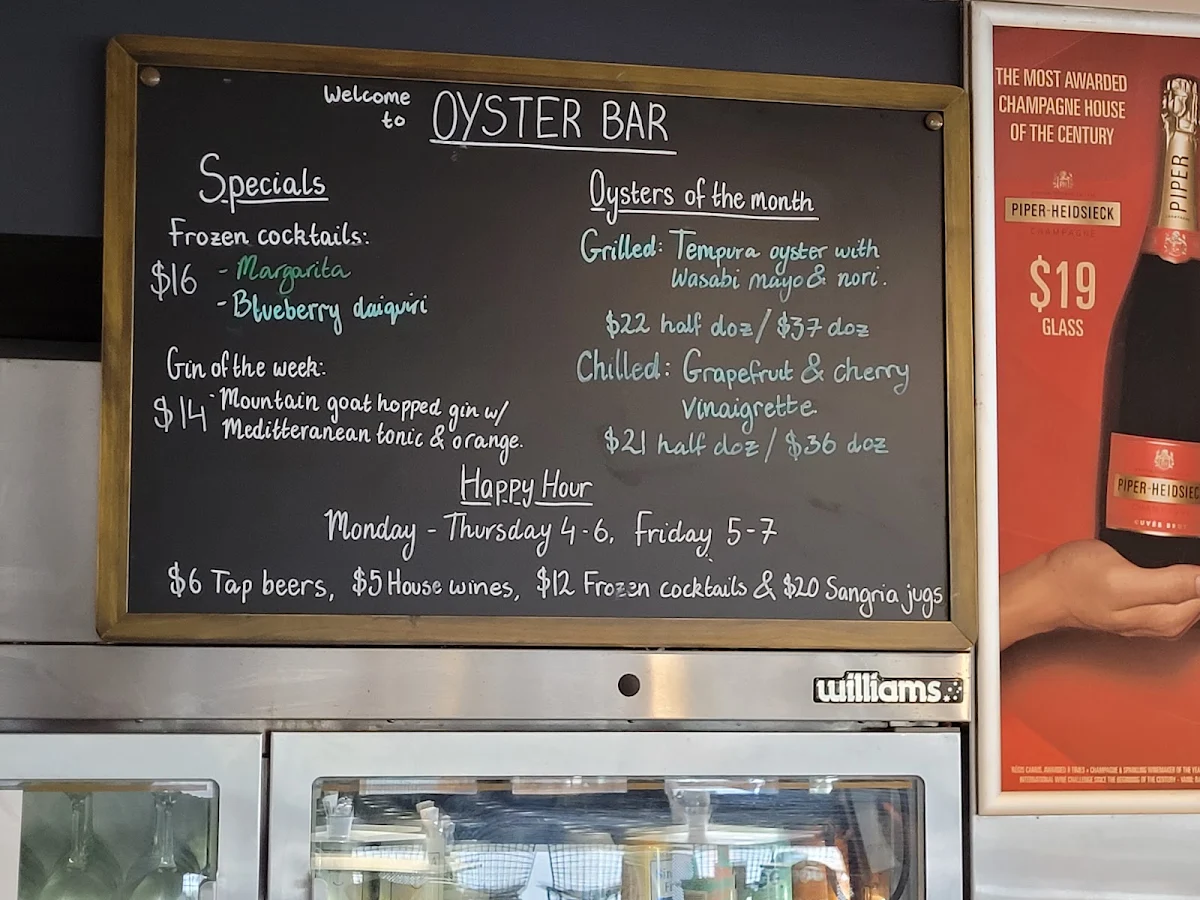 Welcome to OYSTER BAR
Specials
Frozen cocktails:
$16 - Margarita
- Blueberry daiquiri
Gin of the week:
$14 - Mountain goat hopped gin w/
Meditteranean tonic & orange.
Oysters of the month
Grilled: Tempura oyster with
Wasabi mayo & nori.
$22 half doz / $37 doz
Chilled: Grapefruit & cherry
vinaigrette
$21 half doz / $36 doz
Happy Hour
Monday - Thursday 4-6, Friday 5-7
$6 Tap beers, $5 House wines, $12 Frozen cocktails & $20 Sangria jugs
williams
THE MOST AWARDED
CHAMPAGNE HOUSE
OF THE CENTURY
PIPER-HEIDSIECK
CHAMPAGNE
$19
GLASS
PIPER
PIPER-HEIDSIEC
CUVÉE BR